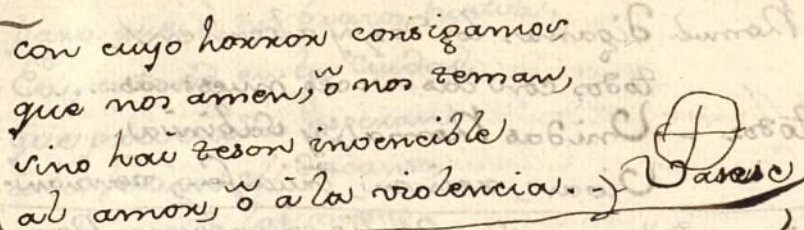 con cuyo horror consigamos
que nos amen, ò nos teman,
sino haì teson invencible
al amor, ò à la violencia. Vasese